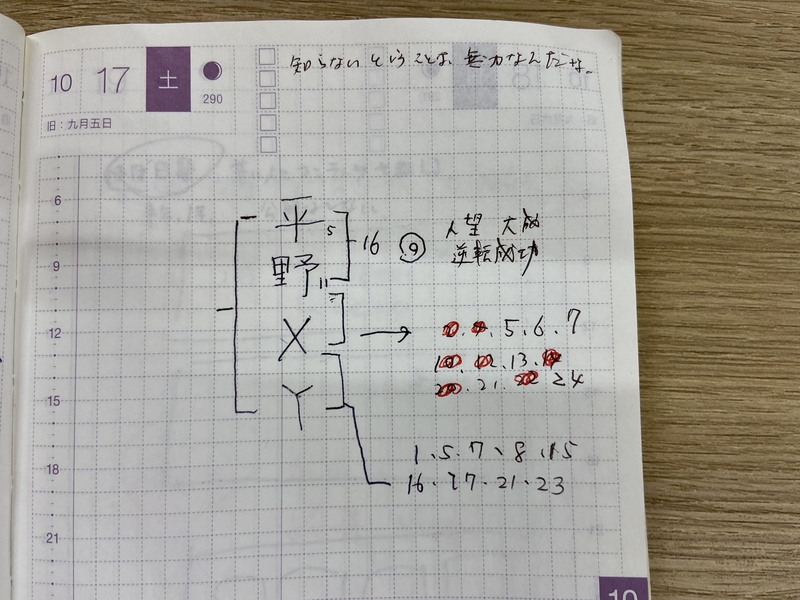 10 17 土
290
旧：九月五日
知らないということは、無力なんだな。
6
9
12
15
18
21
平 5
野 11
16 ⑨
人望 大成
逆転成功
X
Y
→ 5、6、7
13
21 24
1、5、7、8、15
16、17、21、23
10